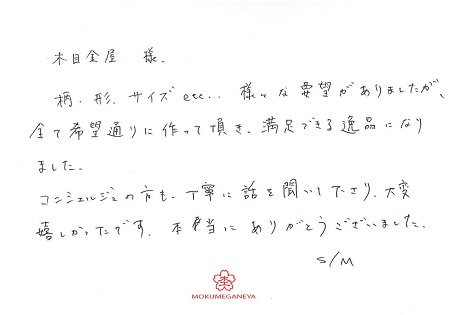 木目金屋 様.
柄、形、サイズetc... 様々な要望がありましたが、
全て希望通りに作って頂き、満足できる逸品になり
ました.
コンシェルジュの方も、丁寧に話を聞いて下さり、大変
嬉しかったです. 本当にありがとうございました.
S/M
MOKUMEGANEYA